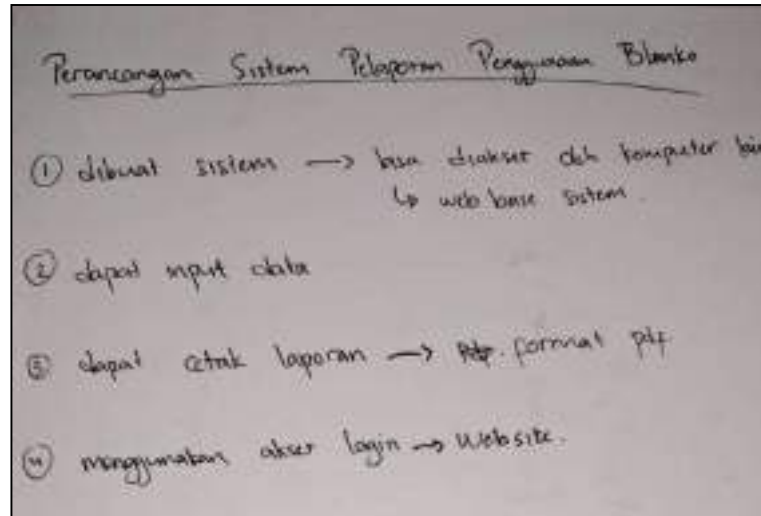 Perancangan Sistem Pelaporan Penggunaan Blanko
① dibuat sistem → bisa diakses oleh komputer
↳ web base sistem.
② dapat input data
③ dapat cetak laporan → format pdf
④ menggunakan akses login → Website.